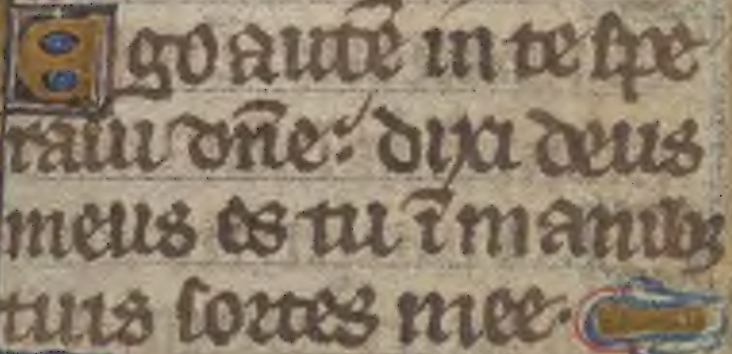 Ego autē in te spe
raui dn̄e: dixi deus
meus es tu ī manibꝫ
tuis sortes mee.